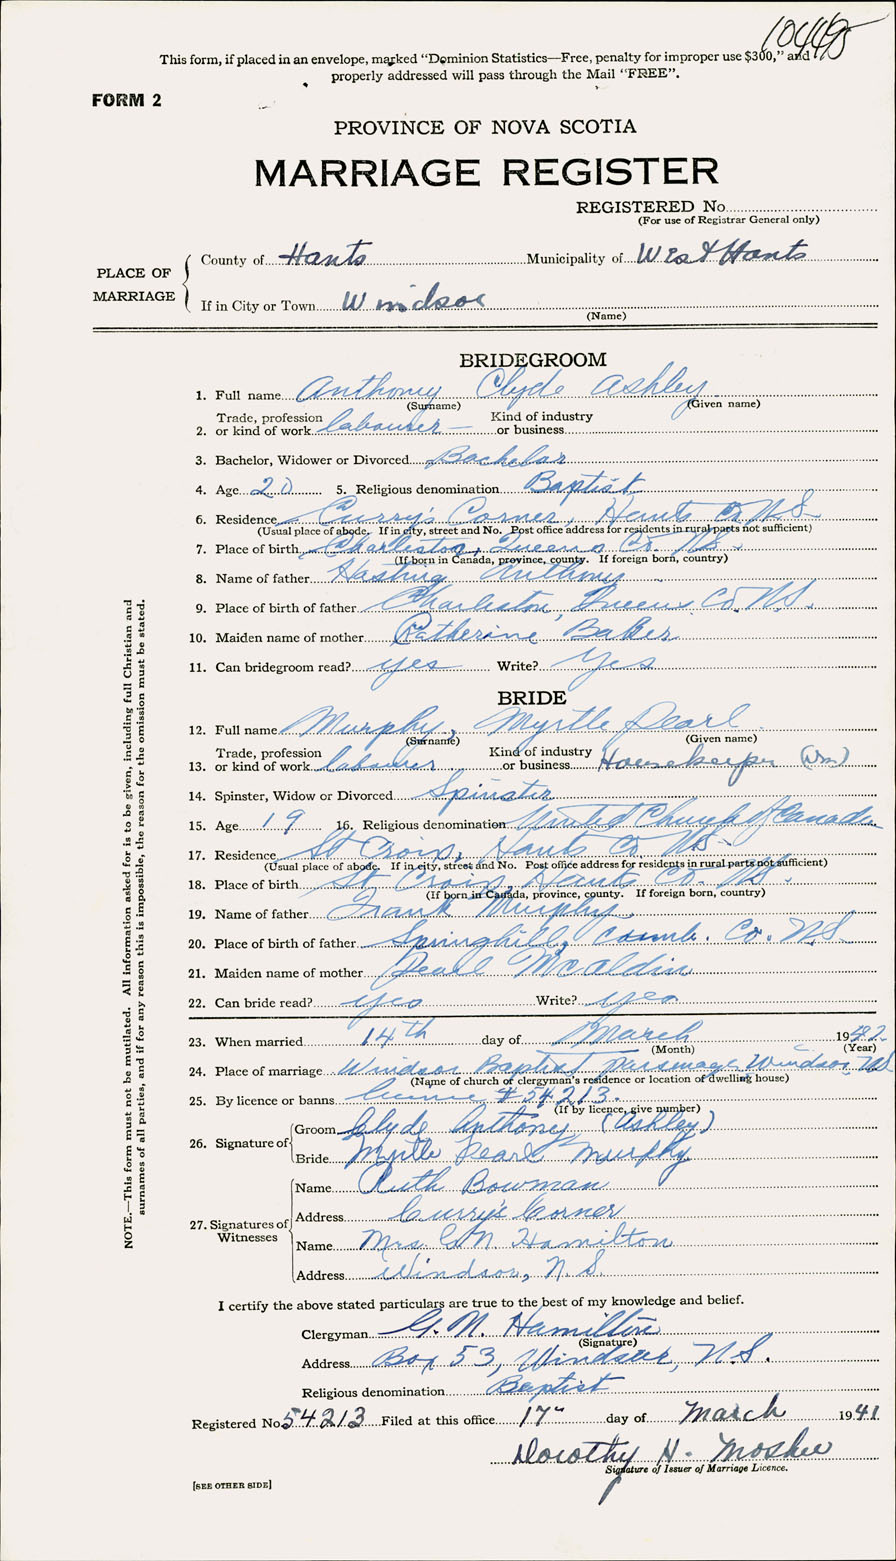 104495
This form, if placed in an envelope, marked "Dominion Statistics—Free, penalty for improper use $300," and
properly addressed will pass through the Mail "FREE".
FORM 2
PROVINCE OF NOVA SCOTIA
MARRIAGE REGISTER
REGISTERED No.
(For use of Registrar General only)
PLACE OF MARRIAGE
County of Hants Municipality of West Hants
If in City or Town Windsor
(Name)
BRIDEGROOM
1. Full name Anthony Clyde Ashley
(Surname) (Given name)
2. Trade, profession or kind of work labourer — Kind of industry or business
3. Bachelor, Widower or Divorced Bachelor
4. Age 20 5. Religious denomination Baptist
6. Residence Curry's Corner, Hants Co N.S.
(Usual place of abode. If in city, street and No. Post office address for residents in rural parts not sufficient)
7. Place of birth Charleston, Queens Co. N.S.
(If born in Canada, province, county. If foreign born, country)
8. Name of father Hasting Anthony
9. Place of birth of father Charleston, Queens Co. N.S.
10. Maiden name of mother Catherine Baker
11. Can bridegroom read? yes Write? Yes
BRIDE
12. Full name Murphy, Myrtle Pearl
(Surname) (Given name)
13. Trade, profession or kind of work labourer Kind of industry or business Housekeeper (Dm)
14. Spinster, Widow or Divorced Spinster
15. Age 19 16. Religious denomination United Church of Canada
17. Residence St Croix, Hants Co N.S.
(Usual place of abode. If in city, street and No. Post office address for residents in rural parts not sufficient)
18. Place of birth St Croix, Hants Co. N.S.
(If born in Canada, province, county. If foreign born, country)
19. Name of father Frank Murphy
20. Place of birth of father Springhill, Cumb. Co. N.S.
21. Maiden name of mother Pearl McAldin
22. Can bride read? yes Write? yes
23. When married 14th day of March 1942
(Month) (Year)
24. Place of marriage Windsor Baptist Parsonage Windsor, N.S.
(Name of church or clergyman's residence or location of dwelling house)
25. By licence or banns licence #54213.
(If by licence, give number)
26. Signature of Groom Clyde Anthony (Ashley)
Bride Myrtle Pearl Murphy
27. Signatures of Witnesses
Name Ruth Bowman
Address Curry's Corner
Name Mrs. G. N. Hamilton
Address Windsor, N.S.
I certify the above stated particulars are true to the best of my knowledge and belief.
Clergyman G. N. Hamilton
(Signature)
Address Box 53, Windsor, N.S.
Religious denomination Baptist
Registered No. 54213 Filed at this office 17" day of March 1941
Dorothy H. Mosher
Signature of Issuer of Marriage Licence.
[SEE OTHER SIDE]
NOTE.—This form must not be mutilated. All information asked for is to be given, including full Christian and
surnames of all parties, and if for any reason this is impossible, the reason for the omission must be stated.